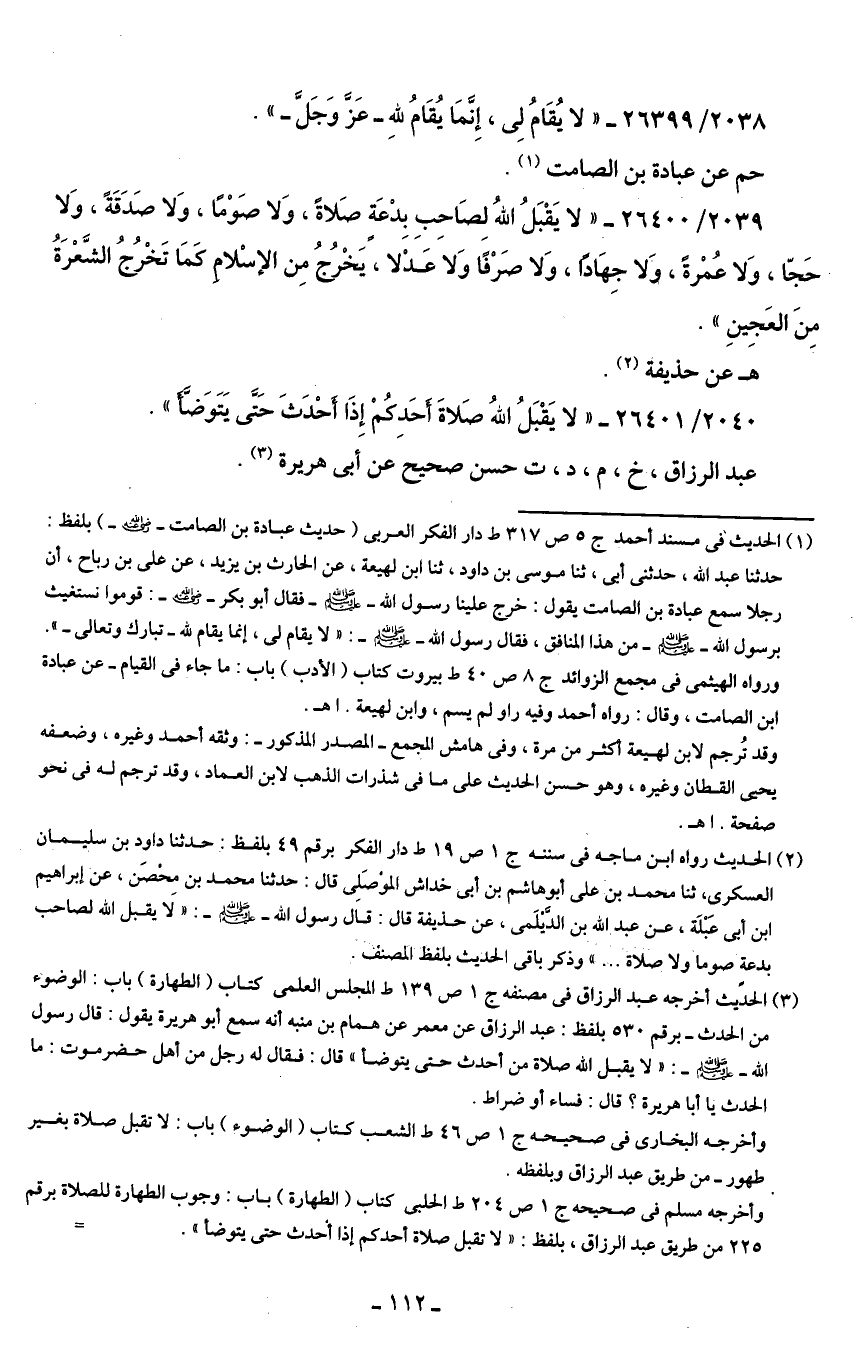 ٢٠٣٨/ ٢٦٣٩٩ ـ « لا يُقَامُ لِى ، إِنَّمَا يُقَامُ لِلهِ ـ عَزَّ وَجَلَّ ـ » .
حم عن عبادة بن الصامت (١) .
٢٠٣٩/ ٢٦٤٠٠ ـ « لا يَقْبَلُ اللهُ لِصَاحِبِ بِدْعَةٍ صَلاةً ، وَلا صَوْمًا ، وَلا صَدَقَةً ، وَلا
حَجّا ، وَلا عُمْرةً ، وَلا جِهَادًا ، وَلا صَرْفًا وَلا عَـدْلا ، يَخْرُجُ مِن الإسْلامِ كَمَا تَخْرُجُ الشَّعْرَةُ
مِنَ العَجِينِ » .
هـ عن حذيفة (٢) .
٢٠٤٠/ ٢٦٤٠١ ـ « لا يَقْبَلُ اللهُ صَلاةَ أَحَدِكُمْ إِذَا أَحْدَثَ حَتَّى يَتَوَضَّأَ » .
عبد الرزاق ، خ ، م ، د ، ت حسن صحيح عن أبى هريرة (٣) .
(١) الحديث فى مسند أحمد ج ٥ ص ٣١٧ ط دار الفكر العربى ( حديث عبـادة بن الصامت ـ رضي الله عنه ـ ) بلفظ :
حدثنا عبد الله ، حدثنى أبى ، ثنا موسى بن داود ، ثنا ابن لهيعة ، عن الحارث بن يزيد ، عن على بن رباح ، أن
رجلا سمع عبادة بن الصامت يقول : خرج علينا رسول الله ـ ﷺ ـ فقال أبو بكر ـ رضي الله عنه ـ : قوموا نستغيث
برسول الله ـ ﷺ ـ من هذا المنافق ، فقال رسول الله ـ ﷺ ـ : « لا يقام لى ، إنما يقام لله ـ تبارك وتعالى ـ ».
ورواه الهيثمى فى مجمع الزوائد ج ٨ ص ٤٠ ط بيروت كتاب ( الأدب ) باب : ما جاء فى القيام ـ عن عبادة
ابن الصامت ، وقال : رواه أحمد وفيه راو لم يسم ، وابن لهيعة . ا هـ .
وقد تُرجم لابن لهـيعة أكثـر من مرة ، وفى هامش المجمع ـ المصدر المذكور ـ : وثقه أحمـد وغيره ، وضعـفه
يحيى القـطان وغيره ، وهو حسـن الحديث على مـا فى شذرات الذهب لابن العـماد ، وقد ترجم لـه فى نحو
صفحة . ا هـ .
(٢) الحـديث رواه ابـن مـاجـه فى سننـه ج ١ ص ١٩ ط دار الفكر برقم ٤٩ بلفـظ : حـدثنا داود بن سليـمان
العسكرى، ثنا محمـد بن على أبوهاشم بن أبى خداش الموْصَلى قال : حدثنا محمـد بن مِحْصَن ، عن إبراهيم
ابن أبى عَبْلَة ، عـن عبد الله بن الدَّيْلَمى ، عن حـذيفة قال : قـال رسول الله ـ ﷺ ـ : « لا يقـبل الله لصاحب
بدعةٍ صوما ولا صلاة ... » وذكر باقى الحديث بلفظ المصنف .
(٣) الحديث أخرجه عبـد الرزاق فى مصنفه ج ١ ص ١٣٩ ط المجلس العلمى كتـاب ( الطهارة ) باب : الوضوء
من الحدث ـ برقم ٥٣٠ بلفظ : عبد الرزاق عن معمر عن همام بن منبه أنه سمع أبو هريرة يقول : قال رسول
الله ـ ﷺ ـ : « لا يقبـل الله صلاة من أحدث حـتى يتوضـأ » قال : فـقال له رجل من أهل حضـرموت : ما
الحدث يا أبا هريرة ؟ قال : فساء أو ضراط .
وأخرجـه البخـارى فى صحيحـه ج ١ ص ٤٦ ط الشعب كـتاب ( الوضـوء ) باب : لا تقبل صـلاة بغـير
طهور ـ من طريق عبد الرزاق وبلفظه .
وأخرجـه مسلم فى صـحيحه ج ١ ص ٢٠٤ ط الحلبى كتاب ( الطهارة ) بـاب : وجوب الطهارة للصلاة برقم
٢٢٥ من طريق عبد الرزاق ، بلفظ : « لا تقبل صلاة أحدكم إذا أحدث حتى يتوضأ » . =
ـ ١١٢ ـ